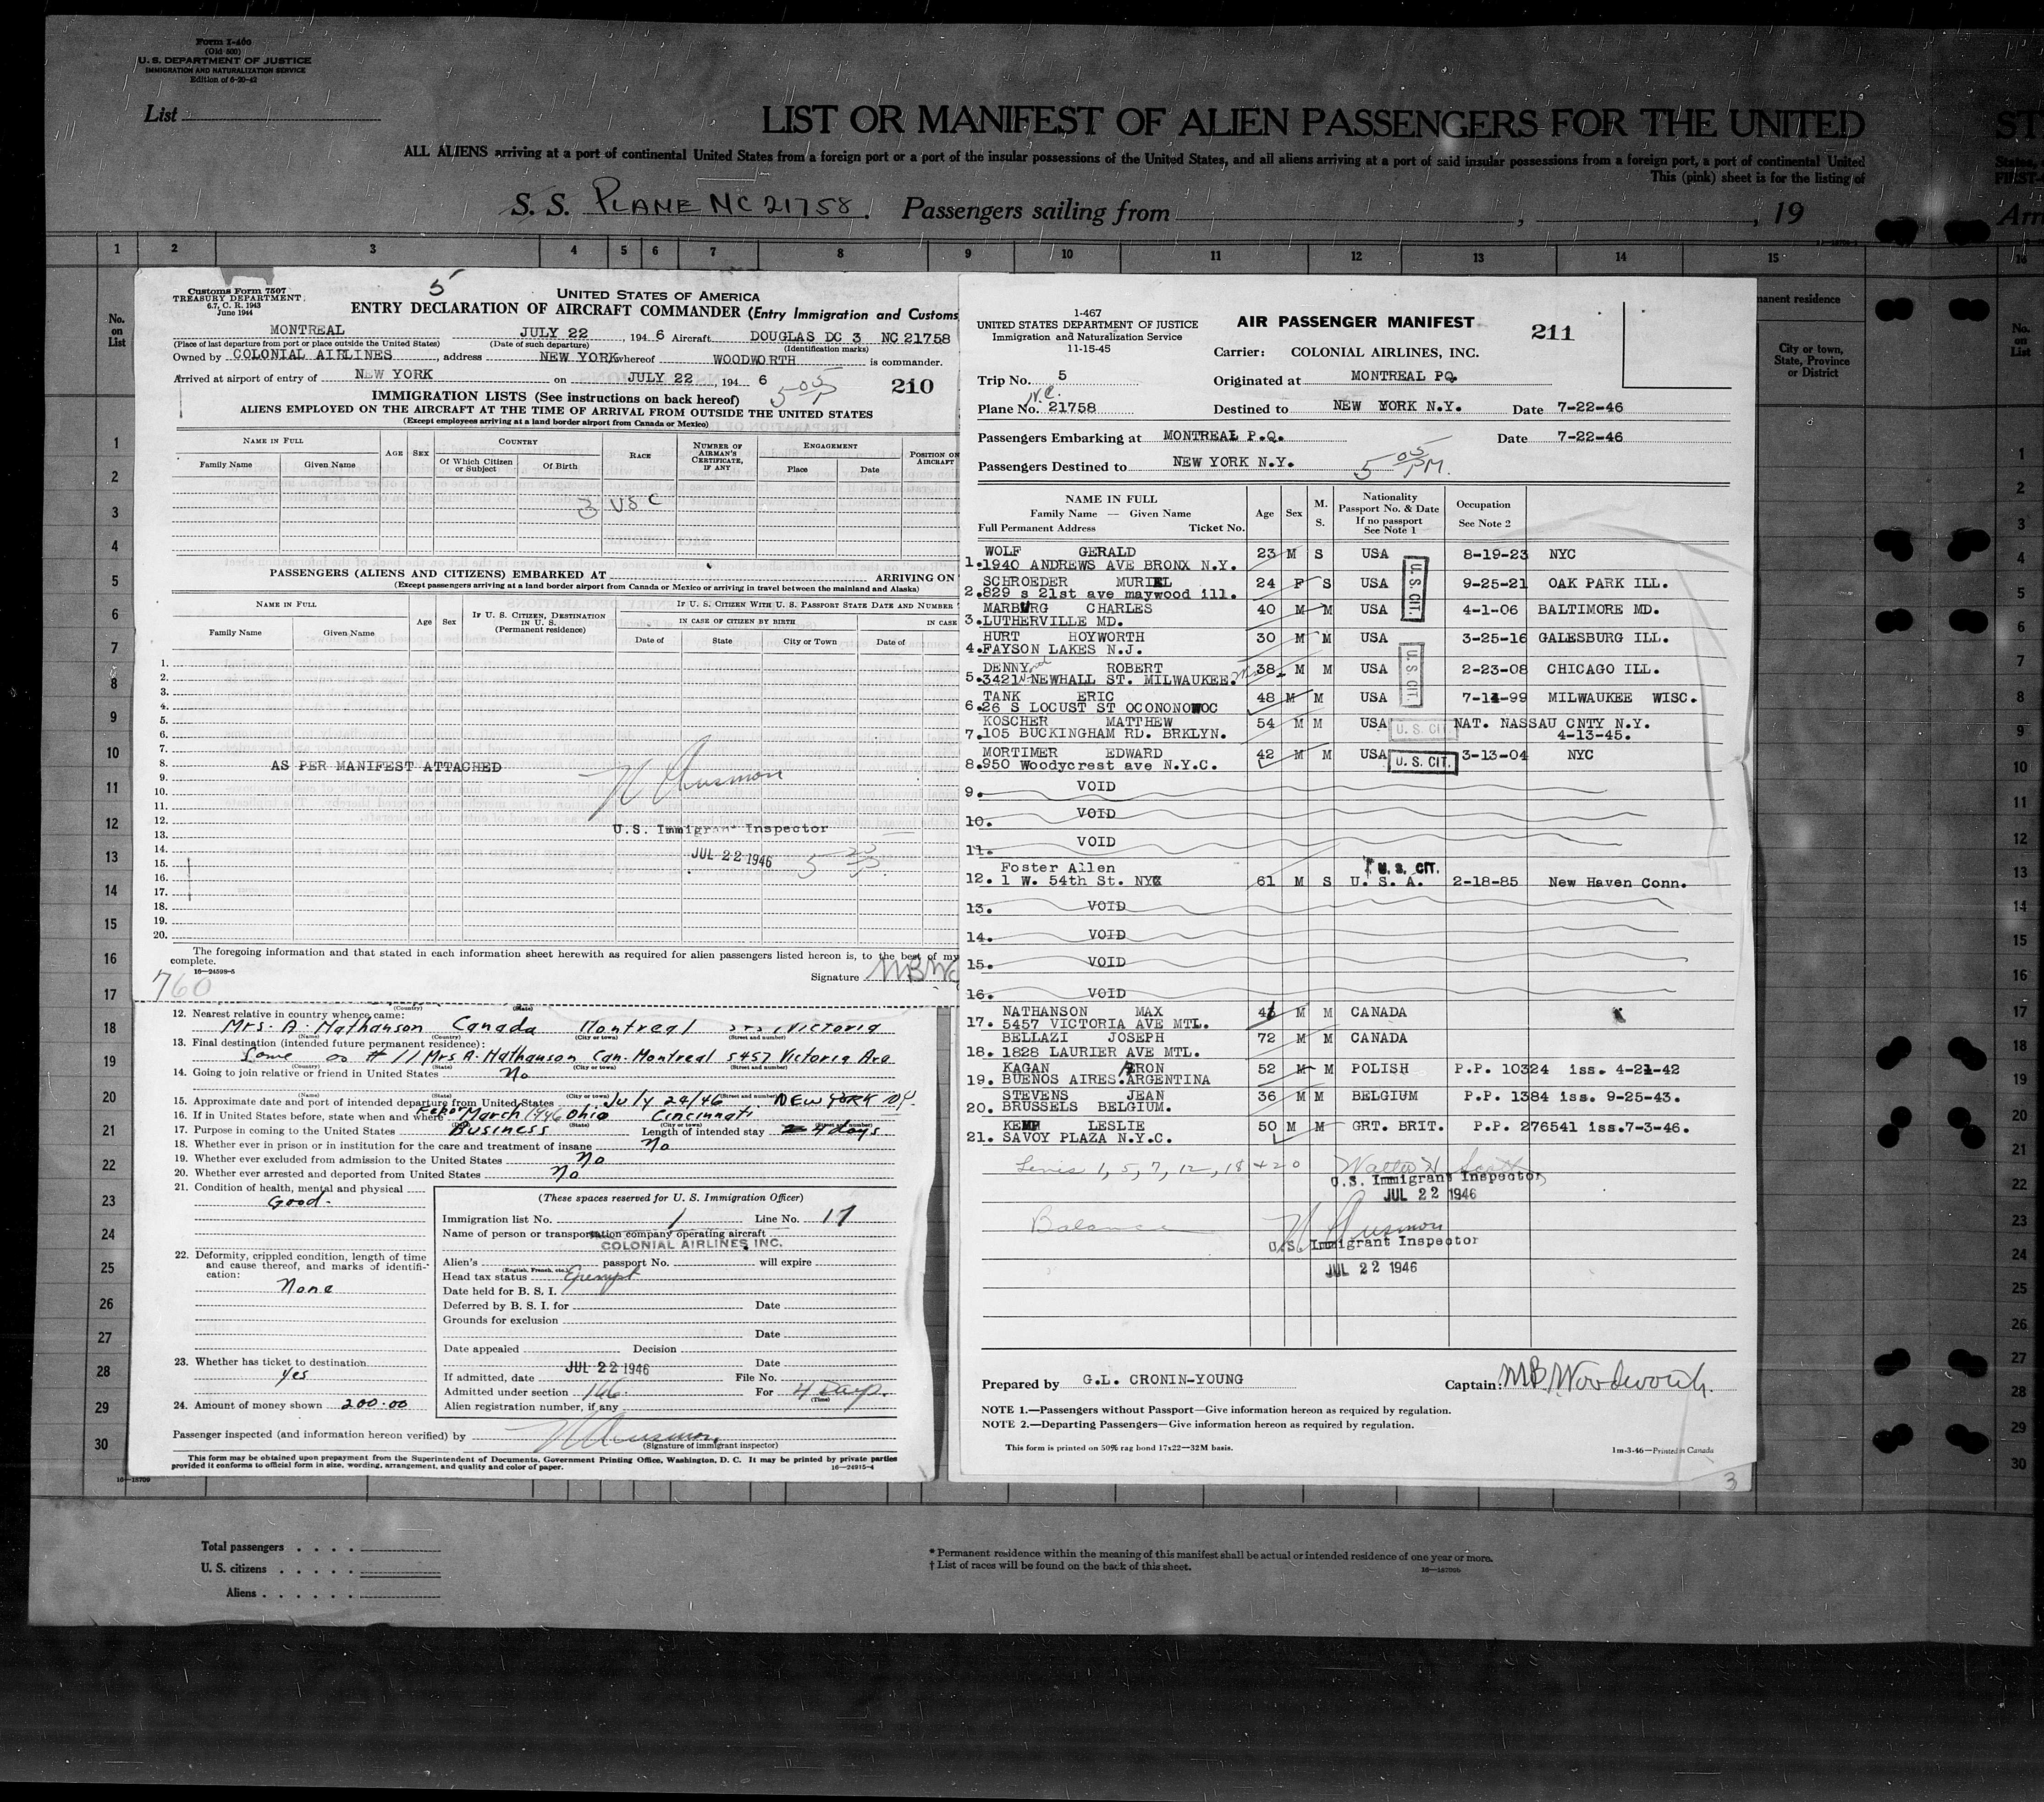 Form I-466
(Old 500)
U. S. DEPARTMENT OF JUSTICE
IMMIGRATION AND NATURALIZATION SERVICE
Edition of 6-20-42
List
LIST OR MANIFEST OF ALIEN PASSENGERS FOR THE UNITED
ST
ALL ALIENS arriving at a port of continental United States from a foreign port or a port of the insular possessions of the United States, and all aliens arriving at a port of said insular possessions from a foreign port, a port of continental United
This (pink) sheet is for the listing of
S. S. PLANE NC 21758. Passengers sailing from , , 19
Arri
1 2 3 4 5 6 7 8 9 10 11 12 13 14 15 16
No. on List
manent residence
City or town, State, Province or District
5
Customs Form 7507
TREASURY DEPARTMENT
6.7, C. R. 1943
June 1944
UNITED STATES OF AMERICA
ENTRY DECLARATION OF AIRCRAFT COMMANDER (Entry Immigration and Customs
MONTREAL JULY 22, 194 6 Aircraft DOUGLAS DC 3 NC 21758
(Place of last departure from port or place outside the United States) (Date of such departure) (Identification marks)
Owned by COLONIAL AIRLINES, address NEW YORK whereof WOODWORTH is commander.
Arrived at airport of entry of NEW YORK on JULY 22, 194 6
5 05 P 210
IMMIGRATION LISTS (See instructions on back hereof)
ALIENS EMPLOYED ON THE AIRCRAFT AT THE TIME OF ARRIVAL FROM OUTSIDE THE UNITED STATES
(Except employees arriving at a land border airport from Canada or Mexico)
NAME IN FULL AGE SEX COUNTRY RACE NUMBER OF AIRMAN'S CERTIFICATE, IF ANY ENGAGEMENT POSITION ON AIRCRAFT
Family Name Given Name Of Which Citizen or Subject Of Birth Place Date
3 USC
PASSENGERS (ALIENS AND CITIZENS) EMBARKED AT ARRIVING ON
(Except passengers arriving at a land border airport from Canada or Mexico or arriving in travel between the mainland and Alaska)
NAME IN FULL Age Sex IF U. S. CITIZEN, DESTINATION IN U. S. (Permanent residence) IF U. S. CITIZEN WITH U. S. PASSPORT STATE DATE AND NUMBER
IN CASE OF CITIZEN BY BIRTH IN CASE
Family Name Given Name Date of State City or Town Date of
1.
2.
3.
4.
5.
6.
7.
8. AS PER MANIFEST ATTACHED
9.
10.
11.
12.
U.S. Immigrant Inspector
13.
14. JUL 22 1946
15.
16.
17.
18.
19.
20.
The foregoing information and that stated in each information sheet herewith as required for alien passengers listed hereon is, to the best of my
complete.
16—24593-5
Signature
760
12. Nearest relative in country whence came:
Mrs. A. Nathanson Canada Montreal Victoria
(Name) (Country) (City or town) (Street and number)
13. Final destination (intended future permanent residence):
Same as # 11 Mrs A. Nathanson Can. Montreal 5457 Victoria Ave
(Country) (State) (City or town) (Street and number)
14. Going to join relative or friend in United States No
(Name) (State) (City or town) (Street and number)
15. Approximate date and port of intended departure from United States July 24/46 NEW YORK NY.
16. If in United States before, state when and where March 1946 Ohio Cincinnati
17. Purpose in coming to the United States Business Length of intended stay 4 days
18. Whether ever in prison or in institution for the care and treatment of insane No
19. Whether ever excluded from admission to the United States No
20. Whether ever arrested and deported from United States No
21. Condition of health, mental and physical
Good.
22. Deformity, crippled condition, length of time and cause thereof, and marks of identification:
None
23. Whether has ticket to destination
Yes
24. Amount of money shown 200.00
(These spaces reserved for U. S. Immigration Officer)
Immigration list No. 1 Line No. 17
Name of person or transportation company operating aircraft
COLONIAL AIRLINES, INC.
Alien's passport No. will expire
(English, French, etc.)
Head tax status Exempt
Date held for B. S. I.
Deferred by B. S. I. for Date
Grounds for exclusion
Date
Date appealed Decision
JUL 22 1946 Date
If admitted, date File No.
Admitted under section For 4 Days.
(Time)
Alien registration number, if any
Passenger inspected (and information hereon verified) by
(Signature of immigrant inspector)
This form may be obtained upon prepayment from the Superintendent of Documents, Government Printing Office, Washington, D. C. It may be printed by private parties
provided it conforms to official form in size, wording, arrangement, and quality and color of paper.
16—24915-4
16—18709
I-467
UNITED STATES DEPARTMENT OF JUSTICE
Immigration and Naturalization Service
11-15-45
AIR PASSENGER MANIFEST
211
Carrier: COLONIAL AIRLINES, INC.
Trip No. 5 Originated at MONTREAL PQ.
N.C.
Plane No. 21758 Destined to NEW YORK N.Y. Date 7-22-46
Passengers Embarking at MONTREAL P.Q. Date 7-22-46
Passengers Destined to NEW YORK N.Y. 5 05 PM.
NAME IN FULL
Family Name — Given Name
Full Permanent Address Ticket No. Age Sex M. S. Nationality Passport No. & Date If no passport See Note 1 Occupation See Note 2
WOLF GERALD 23 M S USA 8-19-23 NYC
1. 1940 ANDREWS AVE BRONX N.Y.
SCHROEDER MURIEL 24 F S USA U.S. CIT. 9-25-21 OAK PARK ILL.
2. 829 s 21st ave maywood ill.
MARBURG CHARLES 40 M M USA 4-1-06 BALTIMORE MD.
3. LUTHERVILLE MD.
HURT HOYWORTH 30 M M USA 3-25-16 GALESBURG ILL.
4. FAYSON LAKES N.J.
DENNY ROBERT 38 M M USA U.S. CIT. 2-23-08 CHICAGO ILL.
5. 3421 N. NEWHALL ST. MILWAUKEE.
TANK ERIC 48 M M USA 7-14-99 MILWAUKEE WISC.
6. 26 S LOCUST ST OCONONOWOC
KOSCHER MATTHEW 54 M M USA U. S. CIT. NAT. NASSAU CNTY N.Y.
7. 105 BUCKINGHAM RD. BRKLYN. 4-13-45.
MORTIMER EDWARD 42 M M USA U. S. CIT. 3-13-04 NYC
8. 950 Woodycrest ave N.Y.C.
9. VOID
10. VOID
11. VOID
Foster Allen U. S. CIT.
12. 1 W. 54th St. NYC 61 M S U. S. A. 2-18-85 New Haven Conn.
13. VOID
14. VOID
15. VOID
16. VOID
NATHANSON MAX M M CANADA
17. 5457 VICTORIA AVE MTL.
BELLAZI JOSEPH 72 M M CANADA
18. 1828 LAURIER AVE MTL.
KAGAN ARON 52 M M POLISH P.P. 10324 iss. 4-21-42
19. BUENOS AIRES.ARGENTINA
STEVENS JEAN 36 M M BELGIUM P.P. 1384 iss. 9-25-43.
20. BRUSSELS BELGIUM.
KEMP LESLIE 50 M M GRT. BRIT. P.P. 276541 iss.7-3-46.
21. SAVOY PLAZA N.Y.C.
1, 5, 7, 12, 18 + 20 Walter H. Scott
U.S. Immigrant Inspector
JUL 22 1946
Balance
U.S. Immigrant Inspector
JUL 22 1946
Prepared by G.L. CRONIN-YOUNG Captain: MB Woodworth
NOTE 1.—Passengers without Passport—Give information hereon as required by regulation.
NOTE 2.—Departing Passengers—Give information hereon as required by regulation.
This form is printed on 50% rag bond 17x22—32M basis. 1m-3-46—Printed in Canada
3
Total passengers
U. S. citizens
Aliens
* Permanent residence within the meaning of this manifest shall be actual or intended residence of one year or more.
† List of races will be found on the back of this sheet.
16—18709b